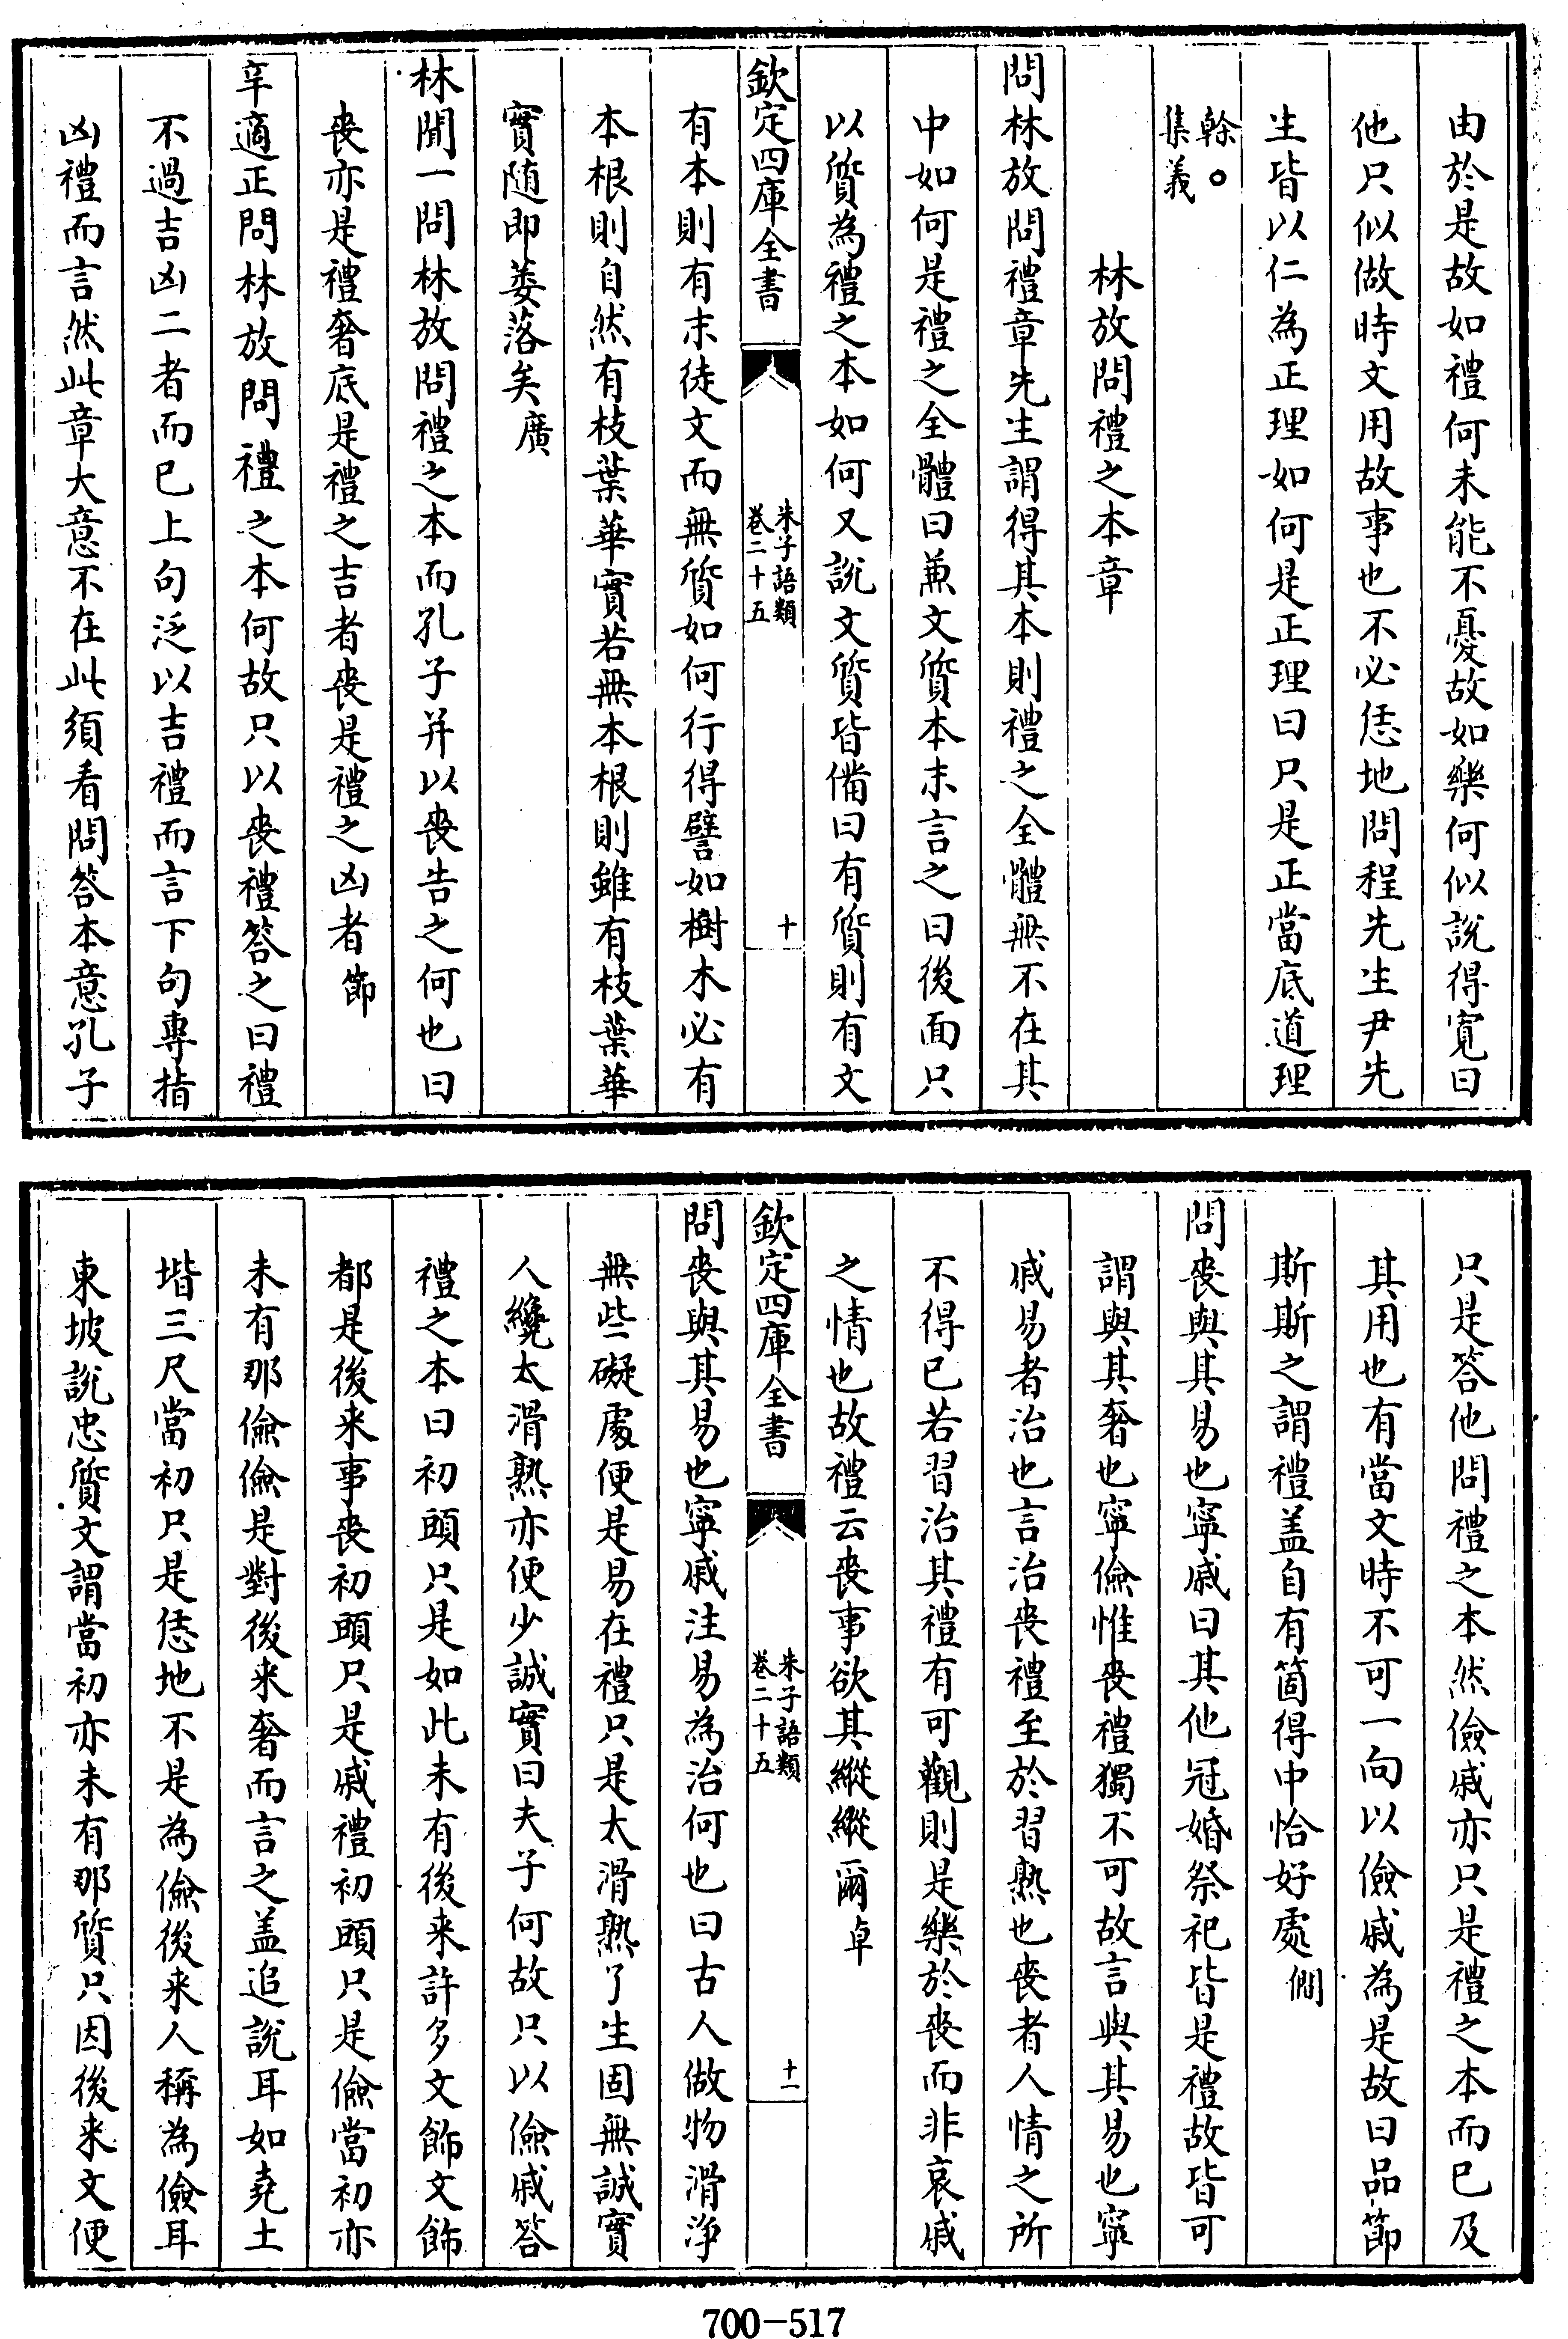 由於是故如禮何未能不憂故如樂何似說得寛曰
他只似做時文用故事也不必恁地問程先生尹先
生皆以仁為正理如何是正理曰只是正當底道理
榦○
集義
林放問禮之本章
問林放問禮章先生謂得其本則禮之全體無不在其
中如何是禮之全體曰兼文質本末言之曰後面只
以質為禮之本如何又說文質皆備曰有質則有文
欽定四庫全書
朱子語類
卷二十五
十
有本則有末徒文而無質如何行得譬如樹木必有
本根則自然有枝葉華實若無本根則雖有枝葉華
實随即萎落矣廣
林聞一問林放問禮之本而孔子并以喪告之何也曰
喪亦是禮奢底是禮之吉者喪是禮之凶者節
辛適正問林放問禮之本何故只以喪禮答之曰禮
不過吉凶二者而已上句泛以吉禮而言下句專指
凶禮而言然此章大意不在此須看問答本意孔子
只是答他問禮之本然儉戚亦只是禮之本而已及
其用也有當文時不可一向以儉戚為是故曰品節
斯斯之謂禮盖自有箇得中恰好處僩
問喪與其易也寧戚曰其他冠婚祭祀皆是禮故皆可
謂與其奢也寧儉惟喪禮獨不可故言與其易也寧
戚易者治也言治喪禮至於習熟也喪者人情之所
不得已若習治其禮有可觀則是樂於喪而非哀戚
之情也故禮云喪事欲其縱縱爾卓
欽定四庫全書
朱子語類
卷二十五
十一
問喪與其易也寧戚注易為治何也曰古人做物滑浄
無些礙處便是易在禮只是太滑熟了生固無誠實
人纔太滑熟亦便少誠實曰夫子何故只以儉戚答
禮之本曰初頭只是如此未有後来許多文飾文飾
都是後来事喪初頭只是戚禮初頭只是儉當初亦
未有那儉儉是對後来奢而言之盖追說耳如堯土
堦三尺當初只是恁地不是為儉後来人稱為儉耳
東坡說忠質文謂當初亦未有那質只因後来文便
700-517